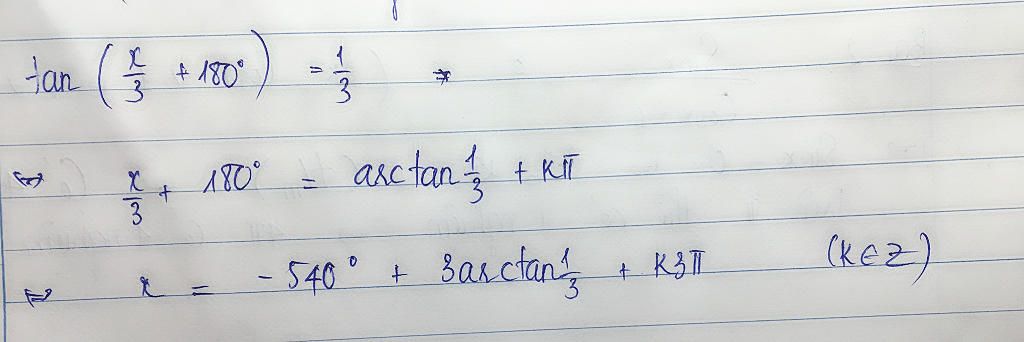 tan (x/3 + 180°) = 1/3 ⇒
⇔ x/3 + 180° = arctan 1/3 + kπ
⇔ x = -540° + 3arctan 1/3 + k3π (k∈Z)